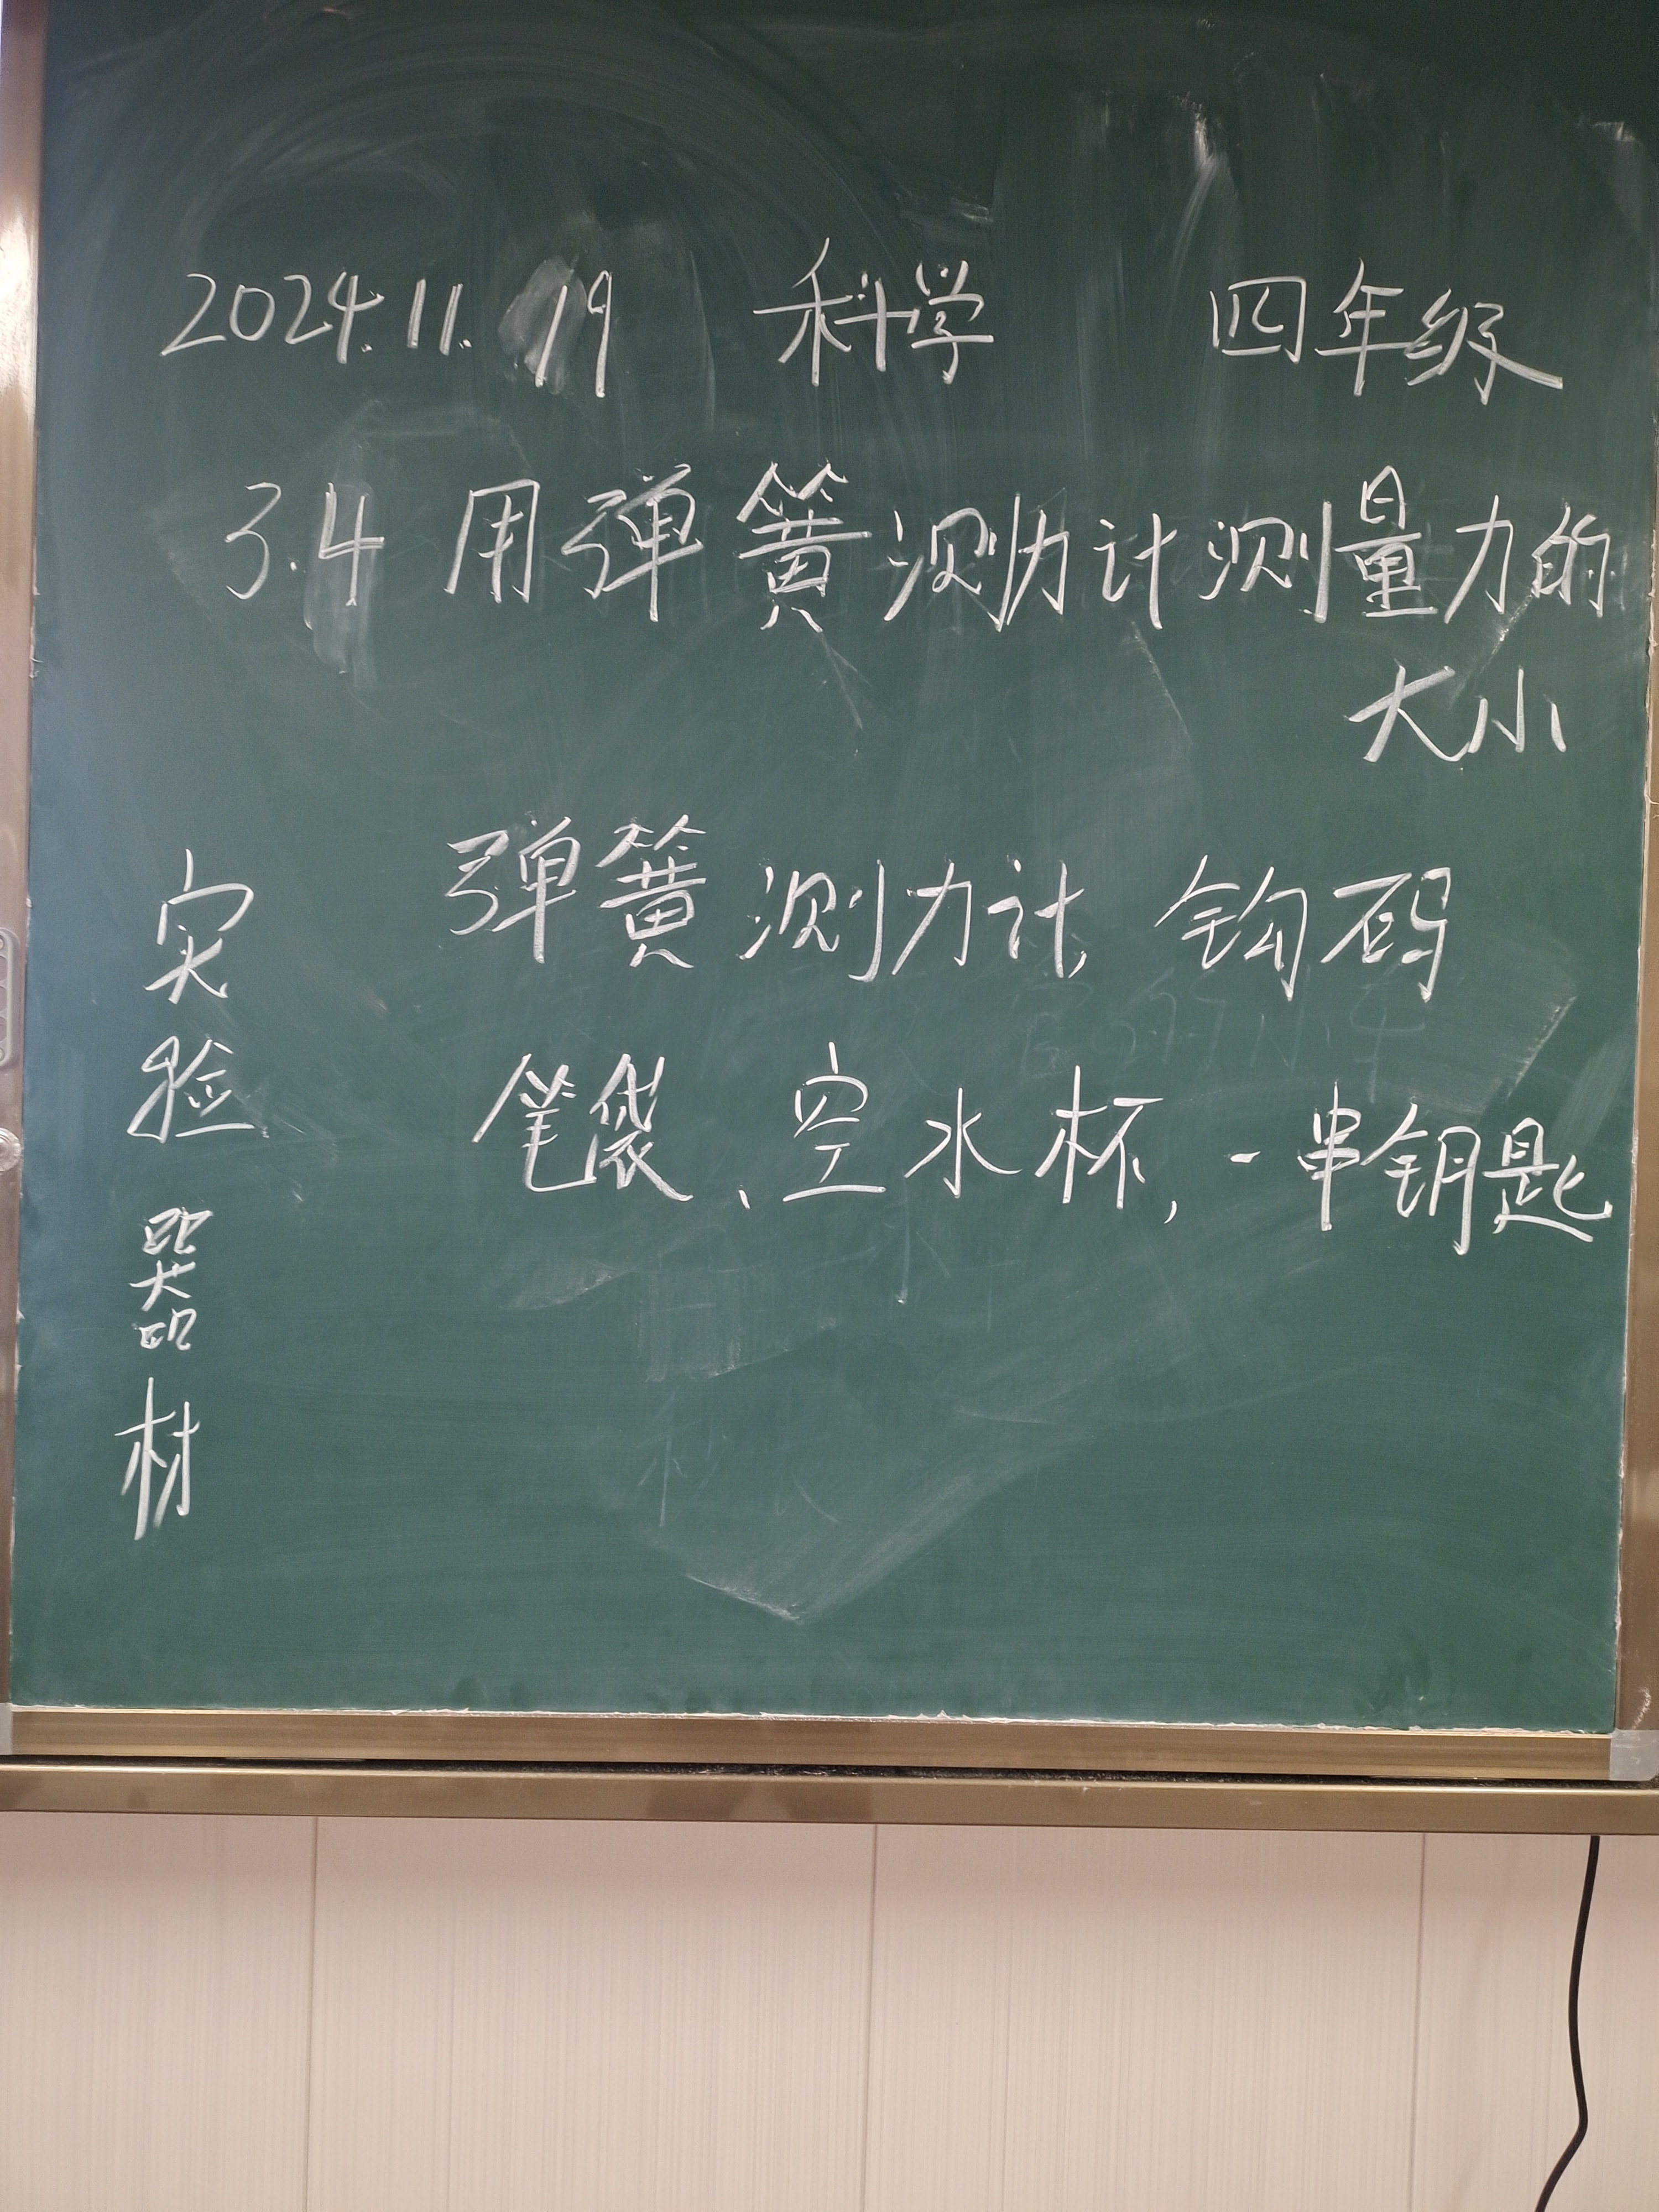 2024.11.19 科学 四年级
3.4 用弹簧测力计测量力的
大小
实验器材
弹簧测力计、钩码
笔袋、空水杯、一串钥匙